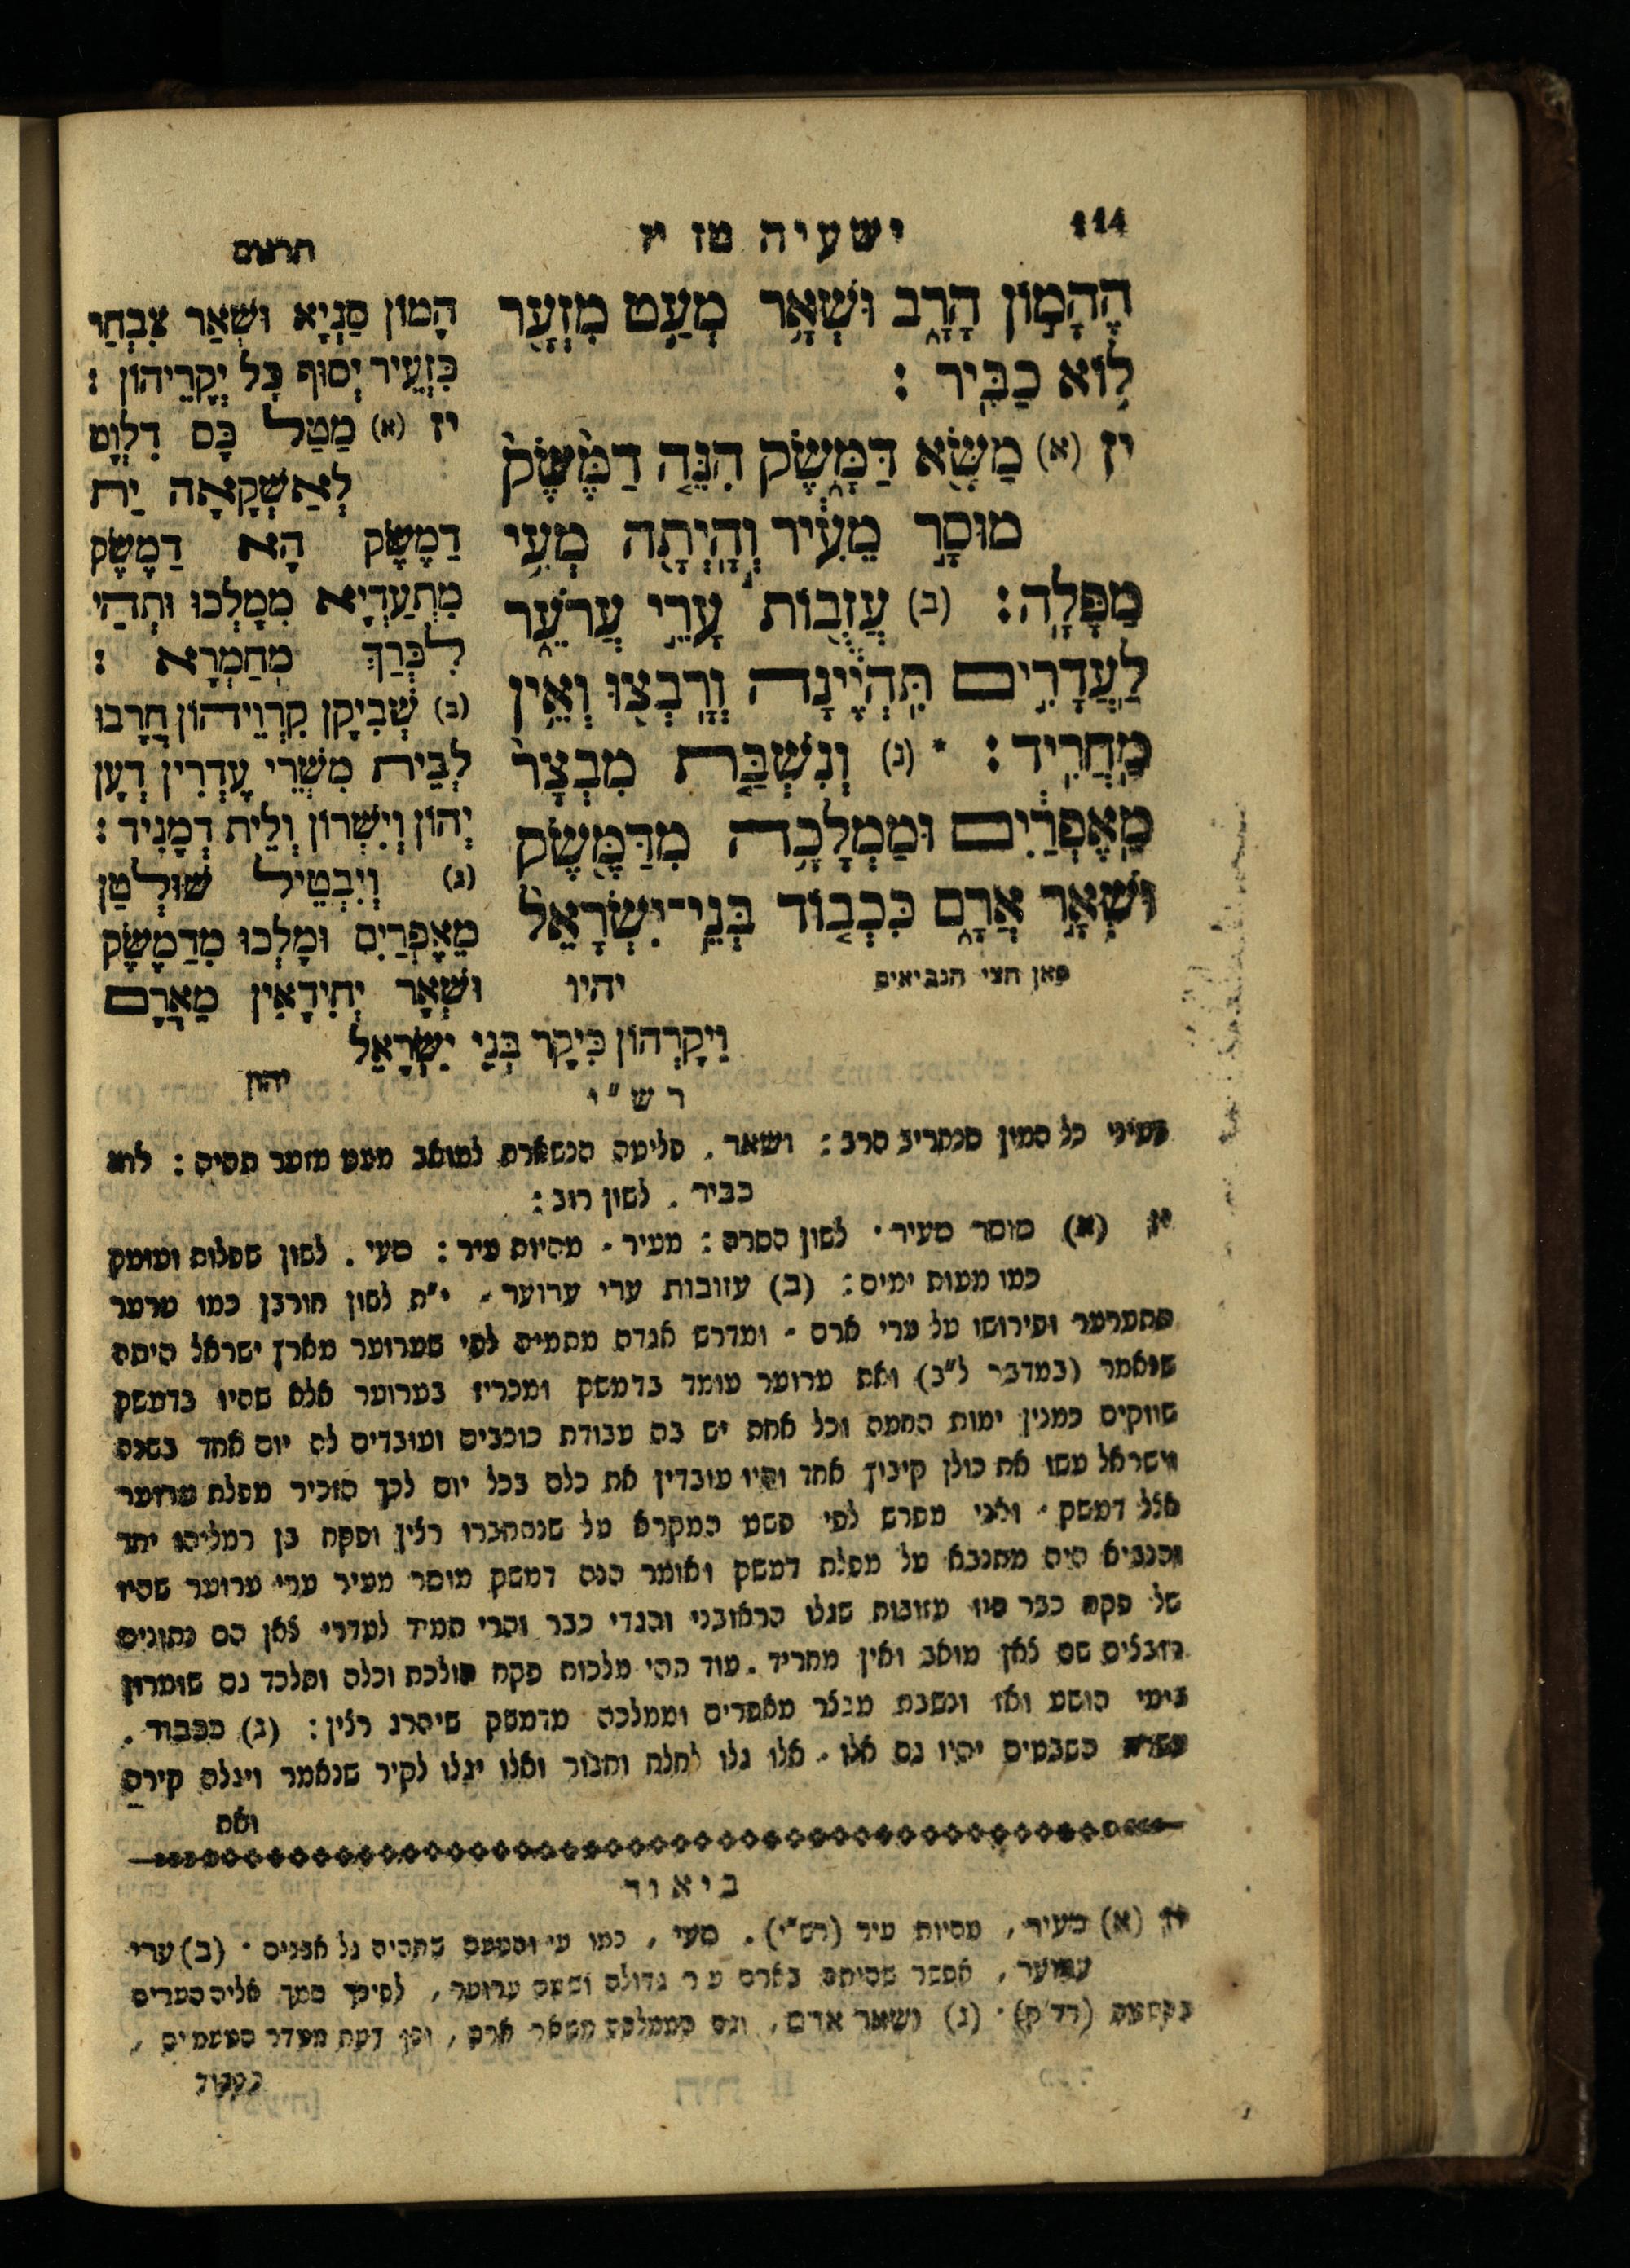 114
ישעיה טז יז
תרגום
הֶהָמ֣וֹן הָרָ֑ב וּשְׁאָ֥ר מְעַ֛ט מִזְעָ֖ר
ל֥וֹא כַבִּֽיר:
יז (א) מַשָּׂ֖א דַּמָּ֑שֶׂק הִנֵּ֤ה דַמֶּ֙שֶׂק֙
מוּסָ֣ר מֵעִ֔יר וְהָיְתָ֖ה מְעִ֥י
מַפָּלָֽה: (ב) עֲזֻב֖וֹת עָרֵ֣י עֲרֹעֵ֑ר
לַעֲדָרִ֣ים תִּֽהְיֶ֔ינָה וְרָבְצ֖וּ וְאֵ֥ין
מַֽחֲרִֽיד: * (ג) וְנִשְׁבַּ֤ת מִבְצָר֙
מֵֽאֶפְרַ֔יִם וּמַמְלָכָ֥ה מִדַּמֶּ֖שֶׂק
וּשְׁאָ֣ר אֲרָ֑ם כִּכְב֤וֹד בְּנֵֽי־יִשְׂרָאֵל֙
כאן חצי הנביאים
יהיו
הָמוֹן סַגְיָא וּשְׁאַר צִבְחַי
כִּזְעֵיר יְסוּף כָּל יְקָרֵיהוֹן:
יז (א) מַטַל כָּס דִלְוָט
לְאַשְׁקָאָה יַת
דַמֶשֶׂק הָא דַמֶשֶׂק
מִתְעַדְיָא מִמָלְכוּ וּתְהֵי
לִכְּרַךְ מְחַמְרָא:
(ב) שְׁבִיקָן קִרְוֵיהוֹן חֲרָבוּ
לְבֵית מִשְׁרֵי עֶדְרִין דְעָן
יְהוֹן וְיִשְׁרוֹן וְלֵית דְמָנִיד:
(ג) וְיִבְטֵיל שׁוּלְטַן
מֵאֶפְרַיִם וּמָלְכוּ מִדַמָשֶׂק
וּשְׁאָר יְחִידָאִין מַאֲרָם
וִיקָרְהוֹן כִּיקָר בְּנֵי יִשְׂרָאֵל
יהון
רש"י
כל המון סנחריב הרב: ושאר. פליטה הנשארת למואב מעט מזער תהיה: לוא
כביר. לשון רוב:
יז (א) מוסר מעיר. לשון הסרה: מעיר. מהיות עיר: מעי. לשון שפלות ועומק
כמו מעות ימים: (ב) עזובות ערי ערוער. י"ת לשון חורבן כמו ערער
תתערער ופירושו על ערי ארם. ומדרש אגדה מתמיה לפי שערוער מארץ ישראל היתה
שנאמר (במדבר ל"ב) ואת ערוער עומד בדמשק ומכריז בערוער אלא שהיו בדמשק
שווקים כמנין ימות החמה וכל אחת יש בה עבודת כוכבים ועובדים לה יום אחד בשנה
וישראל עשו את כולן קיבוץ אחד והיו עובדין את כלם בכל יום לכך הזכיר מפלת ערוער
אצל דמשק. ואני מפרש לפי פשט המקרא על שנתחברו רצין ופקח בן רמליהו יחד
והנביא היה מתנבא על מפלת דמשק ואומר הנה דמשק מוסר מעיר ערי ערוער שהיו
של פקח כבר היו עזובות שגלו הראובני והגדי כבר והרי תמיד לעדרי צאן הם נתונים
רובצים שם צאן מואב ואין מחריד. עוד תהי מלכות פקח הולכת וכלה ותלכד גם שומרון
בימי הושע ואז ונשבת מבצר מאפרים וממלכה מדמשק שיהרג רצין: (ג) ככבוד.
עשרת השבטים יהיו גם אלו. אלו גלו לחלח וחבור ואלו יגלו לקיר שנאמר ויגלה קירה
ואת
ביאור
יז (א) מעיר, מהיות עיר (רש"י). מעי, כמו עי והטעם שתהיה גל אבנים. (ב) ערי
ערוער, אפשר שהיתה בארם עיר גדולה ושמה ערוער, לפיכך סמך אליה הערים
(רד"ק). (ג) ושאר ארם, וגם הממלכה משאר ארם, וכן דעת מסדר הטעמים,
ככבוד